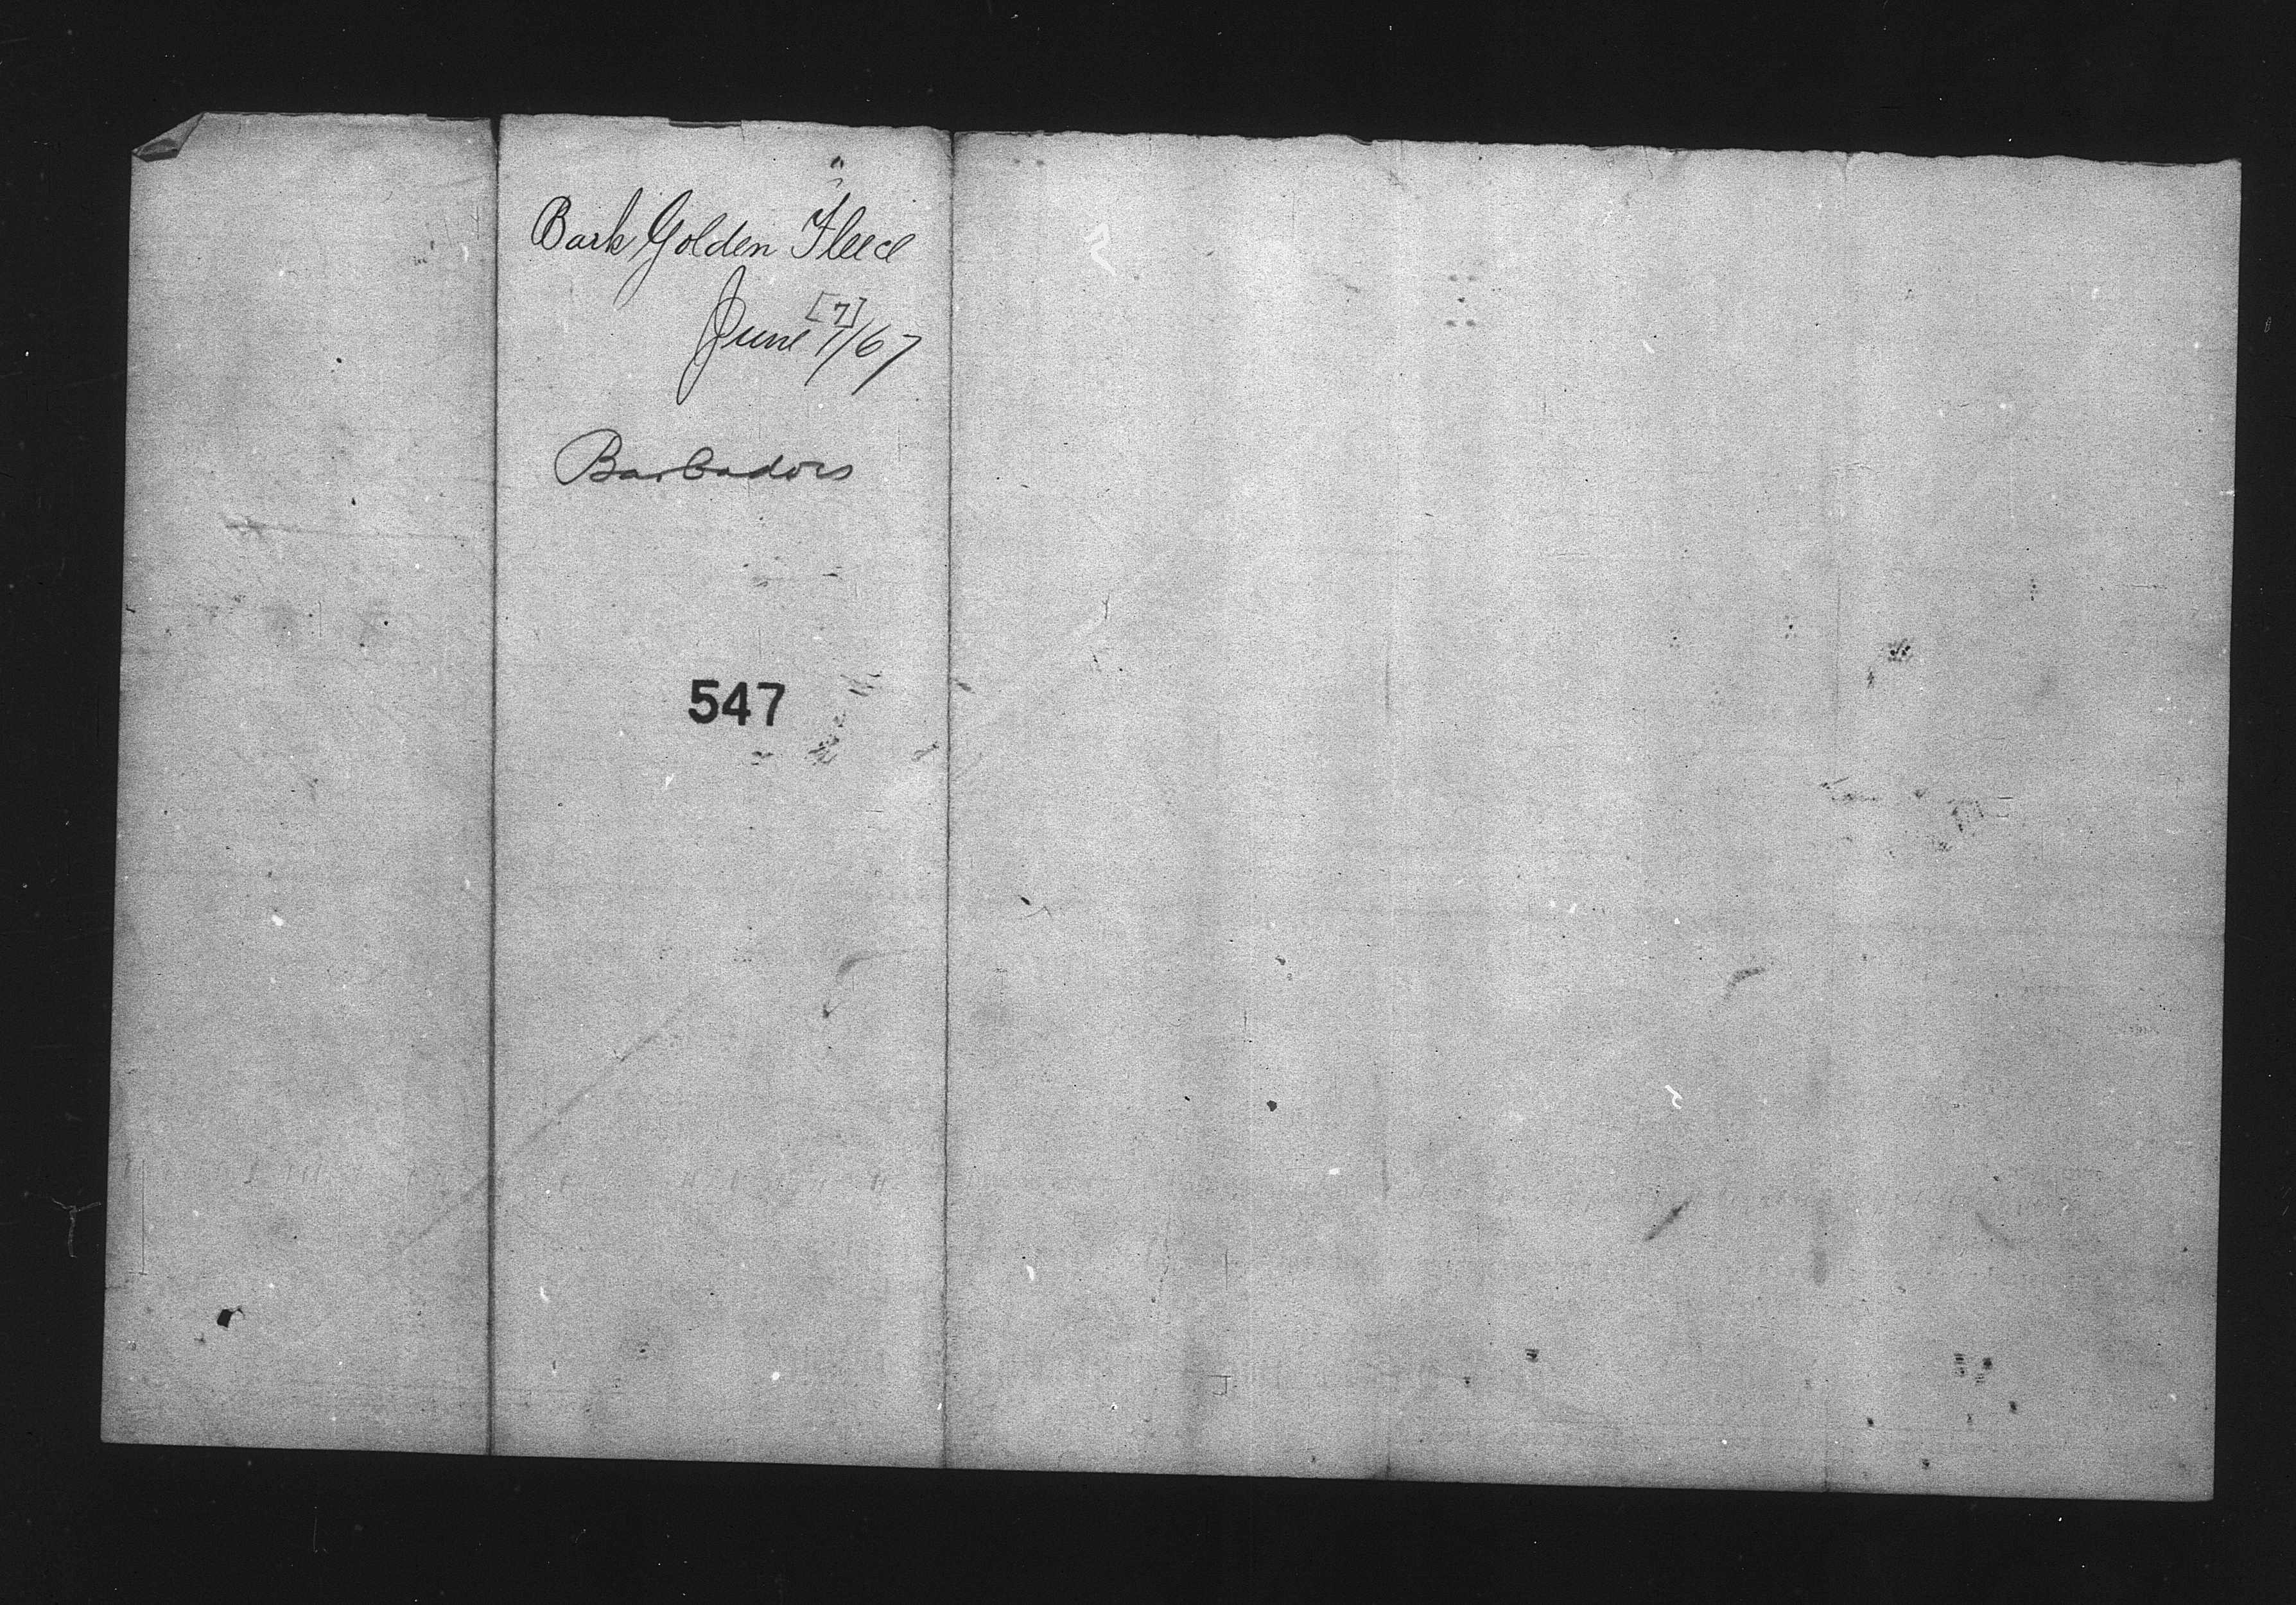 Bark Golden Fleece
[7]
June 7/67
Barbadoes
547